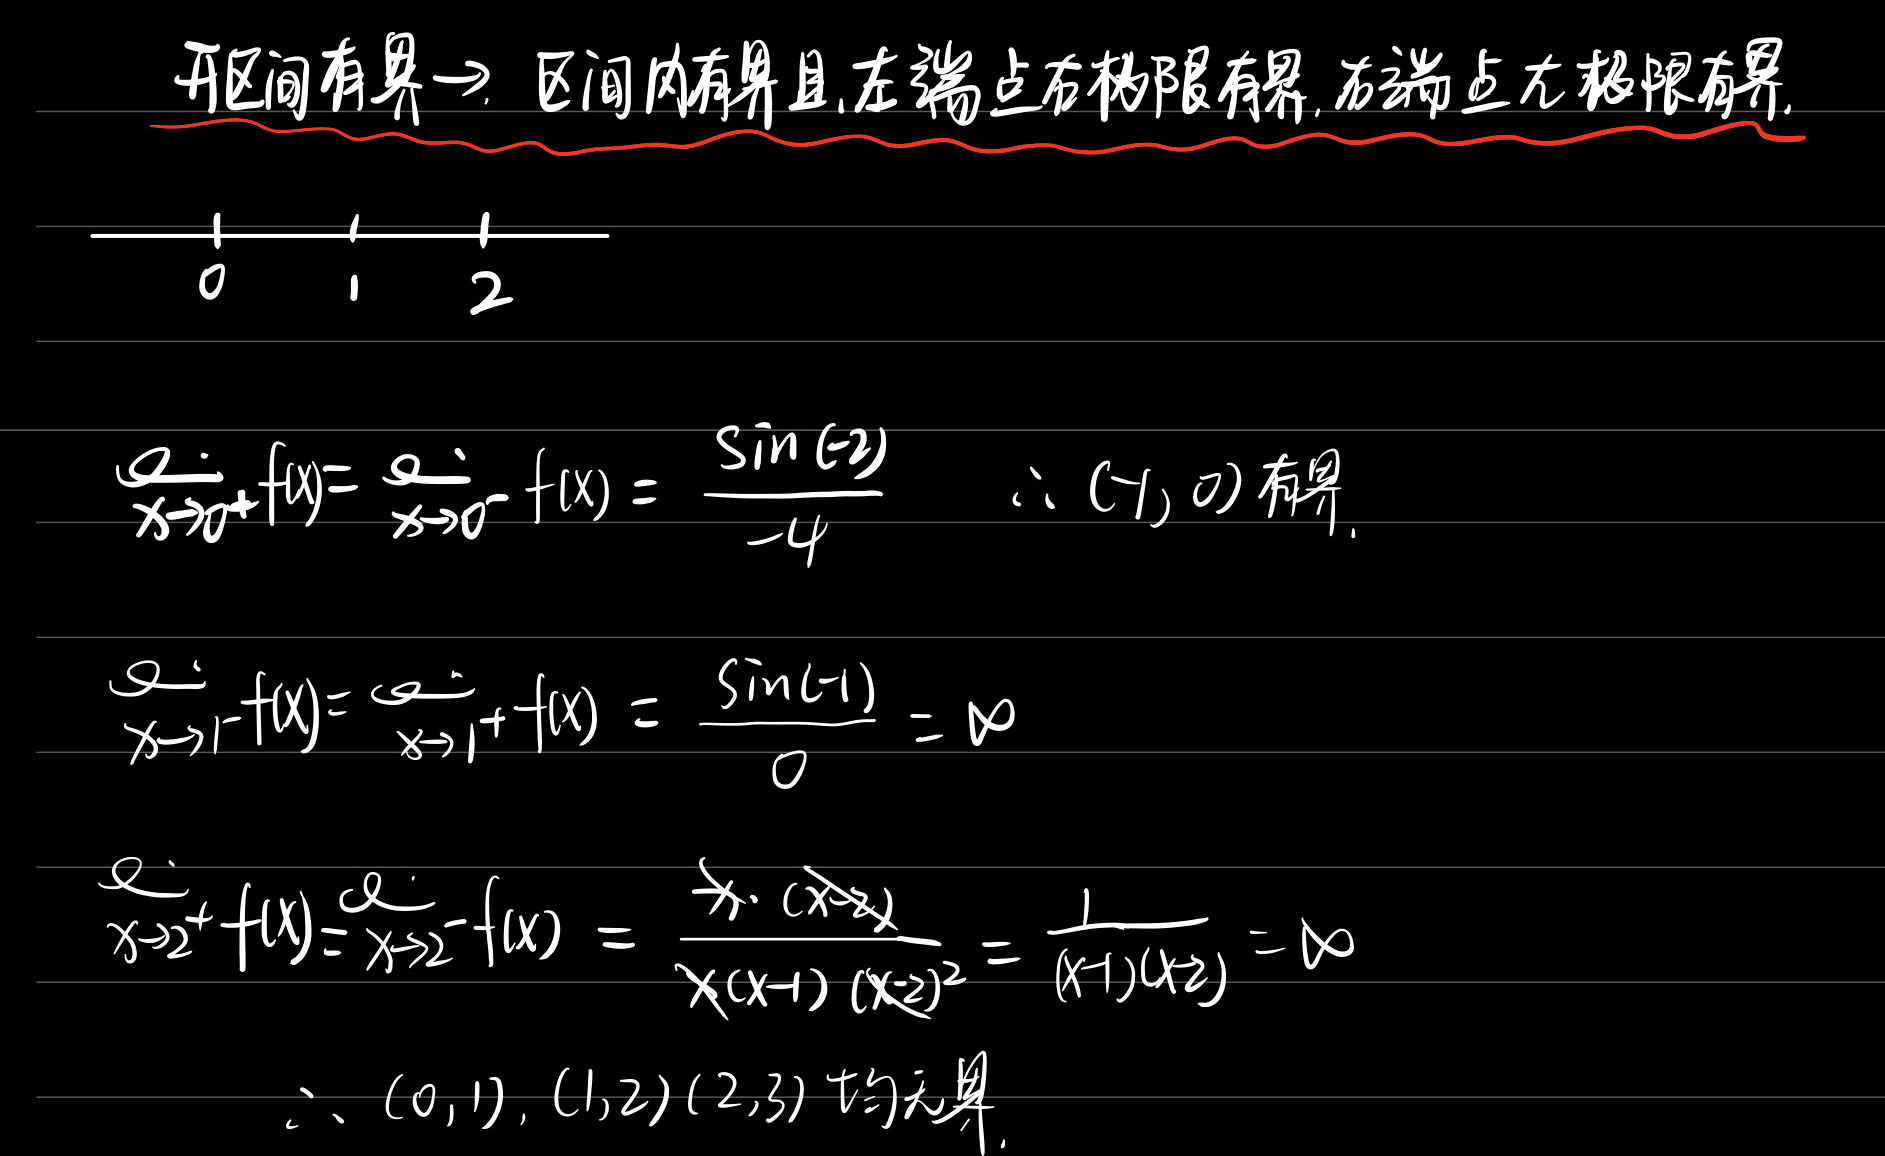 开区间有界→ 区间内有界且,左端点右极限有界,右端点左极限有界.
0 1 2
lim x→0⁺ f(x) = lim x→0⁻ f(x) = sin(-2) / -4 ∴ (-1, 0) 有界.
lim x→1⁻ f(x) = lim x→1⁺ f(x) = sin(-1) / 0 = ∞
lim x→2⁺ f(x) = lim x→2⁻ f(x) = x·(x-2) / x(x-1)(x-2)² = 1 / (x-1)(x-2) = ∞
∴ (0,1), (1,2) (2,3) 均无界.